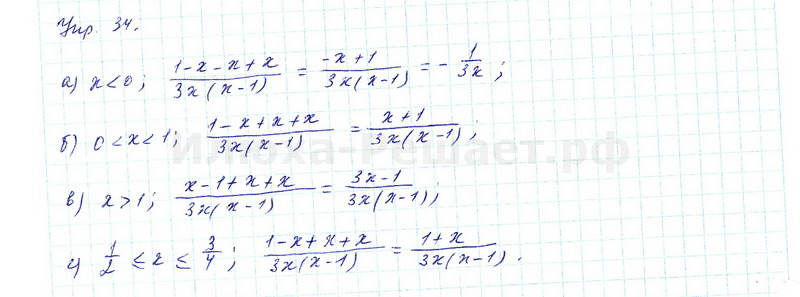 Упр. 34.
а) x < 0; (1-x-x+x)/(3x(x-1)) = (-x+1)/(3x(x-1)) = - 1/(3x);
б) 0 < x < 1; (1-x+x+x)/(3x(x-1)) = (x+1)/(3x(x-1));
в) x > 1; (x-1+x+x)/(3x(x-1)) = (3x-1)/(3x(x-1));
г) 1/2 ≤ x ≤ 3/4; (1-x+x+x)/(3x(x-1)) = (1+x)/(3x(x-1)).
Илюха-Решает.рф